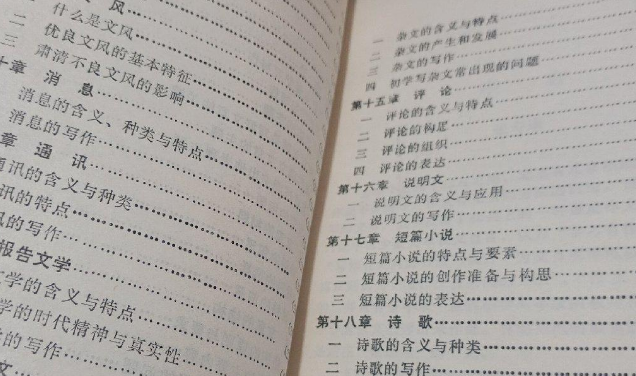 风
什么是文风
二 优良文风的基本特征
三 肃清不良文风的影响
十章 消 息
消息的含义、种类与特点
消息的写作
章 通 讯
通讯的含义与种类
讯的特点
的写作
报告文学
文学的含义与特点
学的时代精神与真实性
的写作
文
一 杂文的含义与特点
二 杂文的产生和发展
三 杂文的写作
四 初学写杂文常出现的问题
第十五章 评 论
一 评论的含义与特点
二 评论的构思
三 评论的组织
四 评论的表达
第十六章 说明文
一 说明文的含义与应用
二 说明文的写作
第十七章 短篇小说
一 短篇小说的特点与要素
二 短篇小说的创作准备与构思
三 短篇小说的表达
第十八章 诗 歌
一 诗歌的含义与种类
二 诗歌的写作